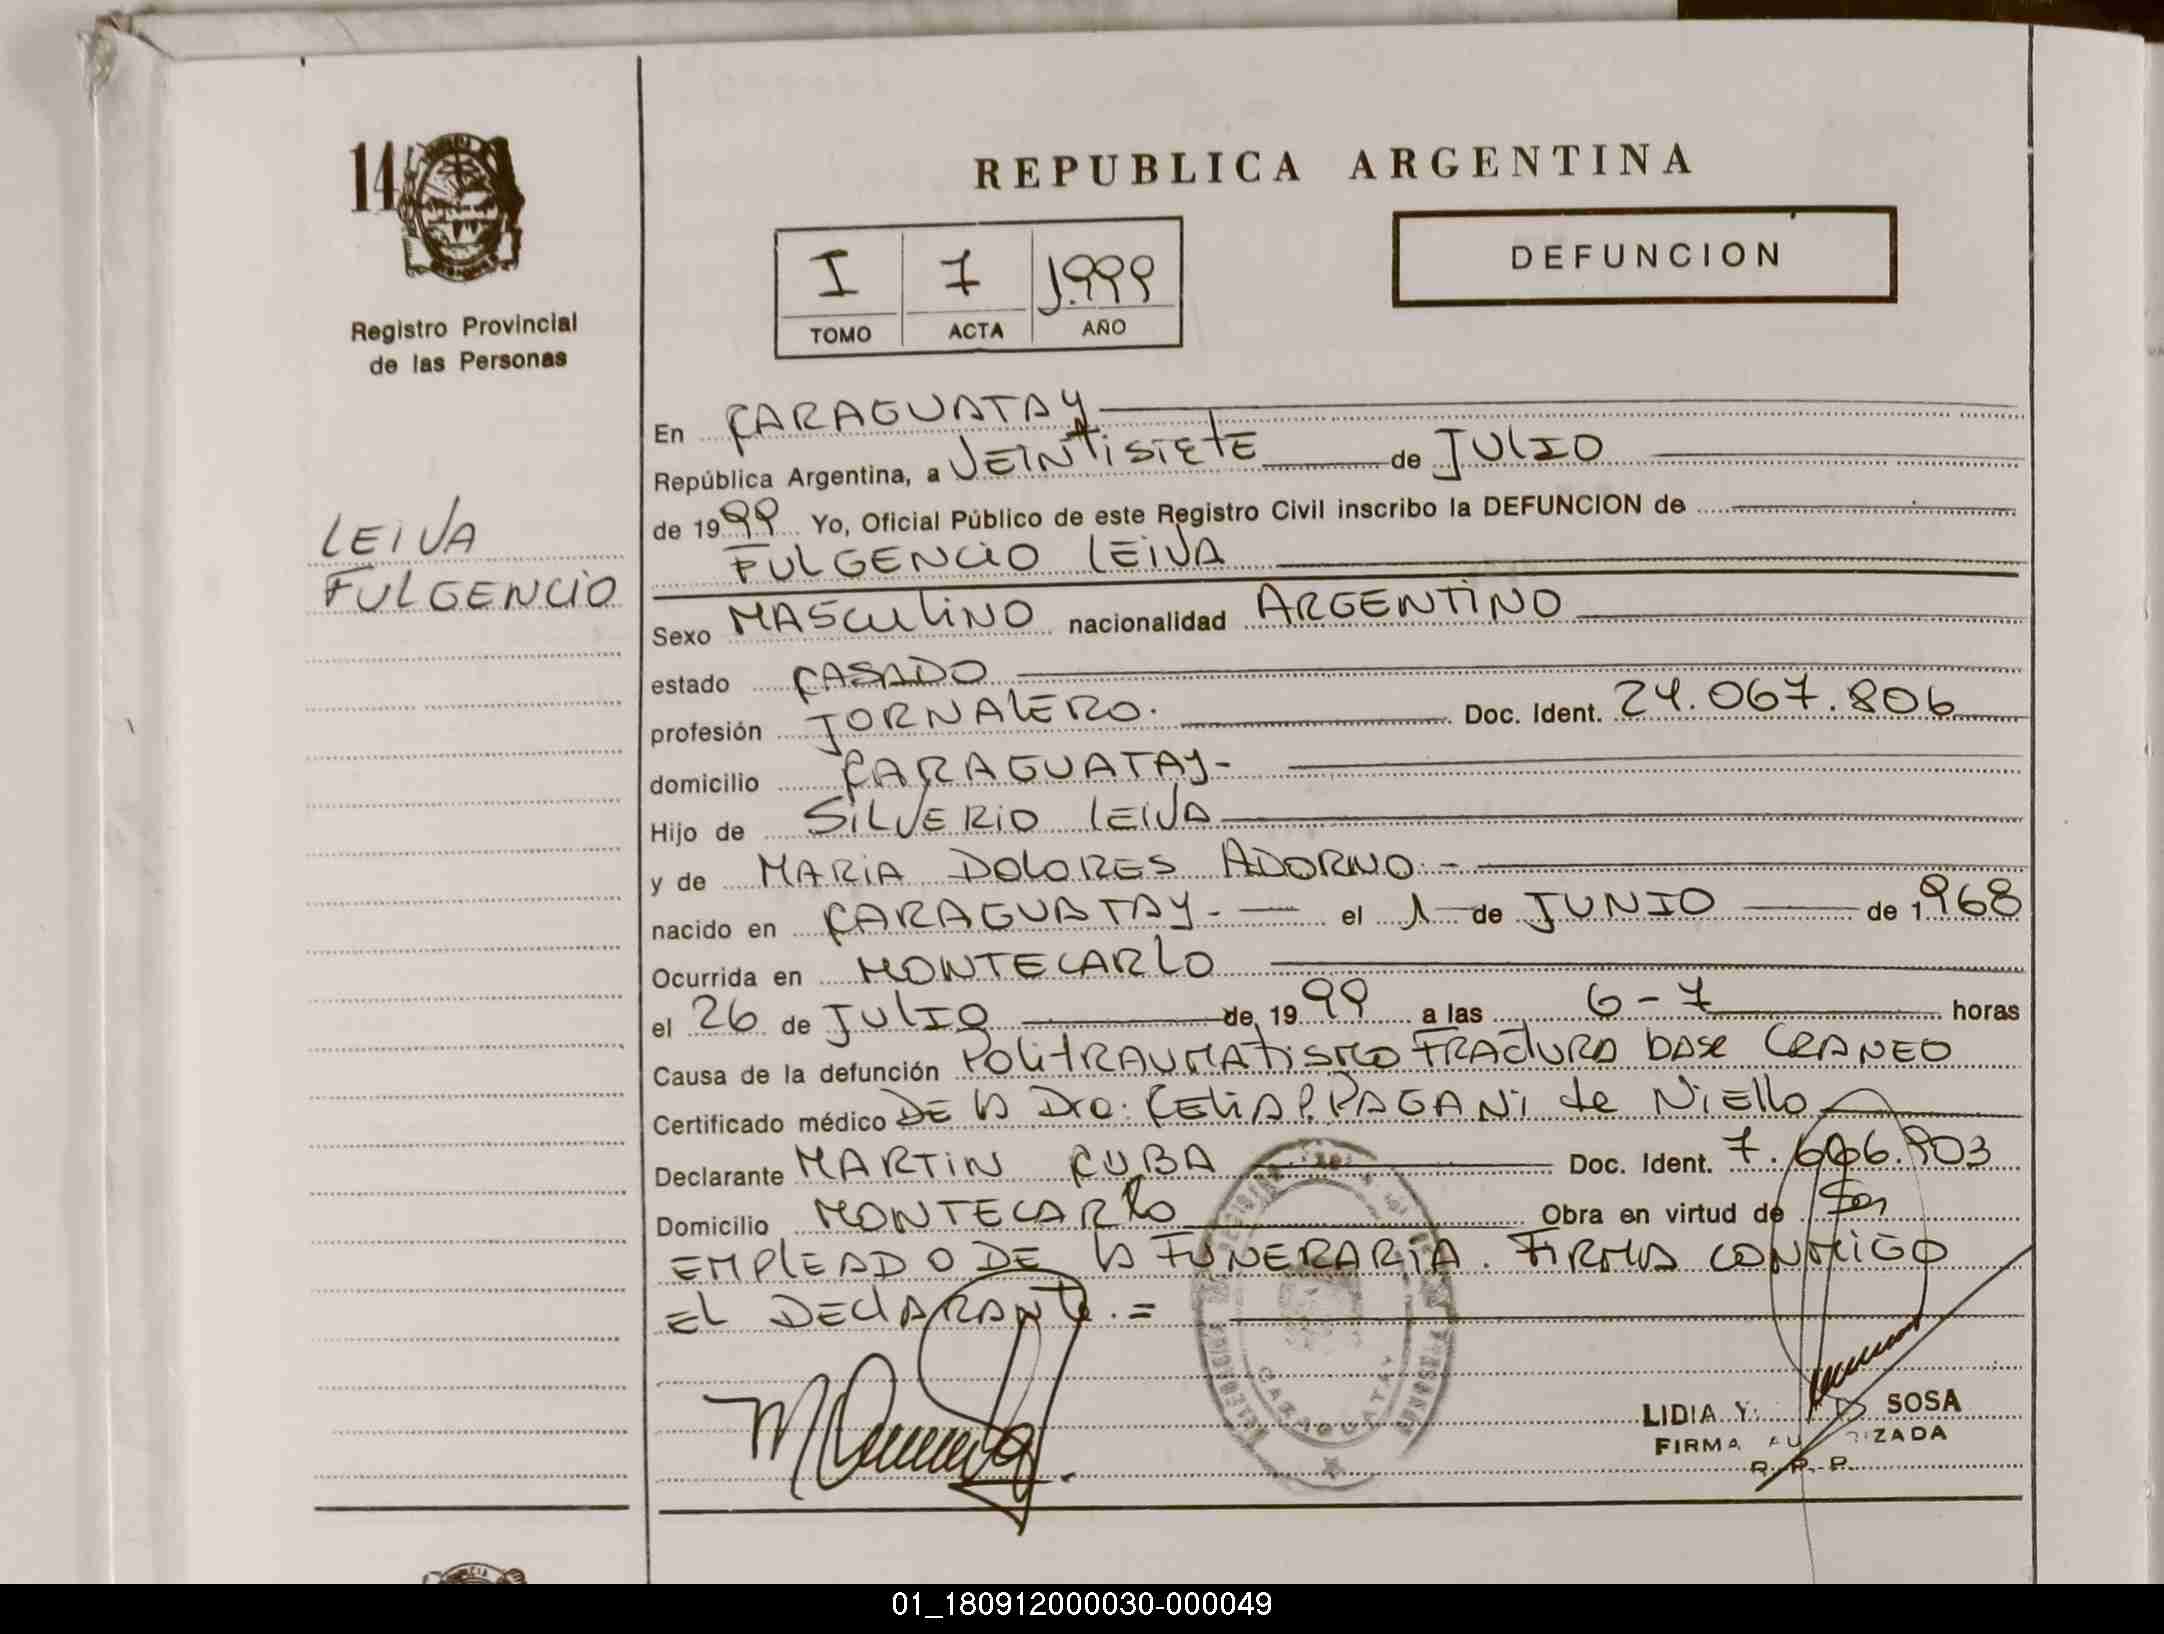 14
Registro Provincial
de las Personas
LEIVA
FULGENCIO
REPUBLICA ARGENTINA
I 7 1.999
TOMO ACTA AÑO
DEFUNCION
En CARAGUATAY
República Argentina, a VEINTISIETE de JULIO
de 1999 Yo, Oficial Público de este Registro Civil inscribo la DEFUNCION de
FULGENCIO LEIVA
Sexo MASCULINO nacionalidad ARGENTINO
estado CASADO
profesión JORNALERO. Doc. Ident. 24.067.806
domicilio CARAGUATAY-
Hijo de SILVERIO LEIVA
y de MARIA DOLORES ADORNO.-
nacido en CARAGUATAY- el 1 de JUNIO de 1968
Ocurrida en MONTECARLO
el 26 de JULIO de 1999 a las 6-7 horas
Causa de la defunción POLITRAUMATISMO FRACTURA BASE CRANEO
Certificado médico DE LA Dra. CELIA P. PAGANI de Niello
Declarante MARTIN CUBA Doc. Ident. 7.606.903
Domicilio MONTECARLO Obra en virtud de Ser
EMPLEADO DE LA FUNERARIA. FIRMA CONMIGO
EL DECLARANTE.=
CARAGUATAY
LIDIA Y. SOSA
FIRMA AUTORIZADA
R.P.P.
01_180912000030-000049